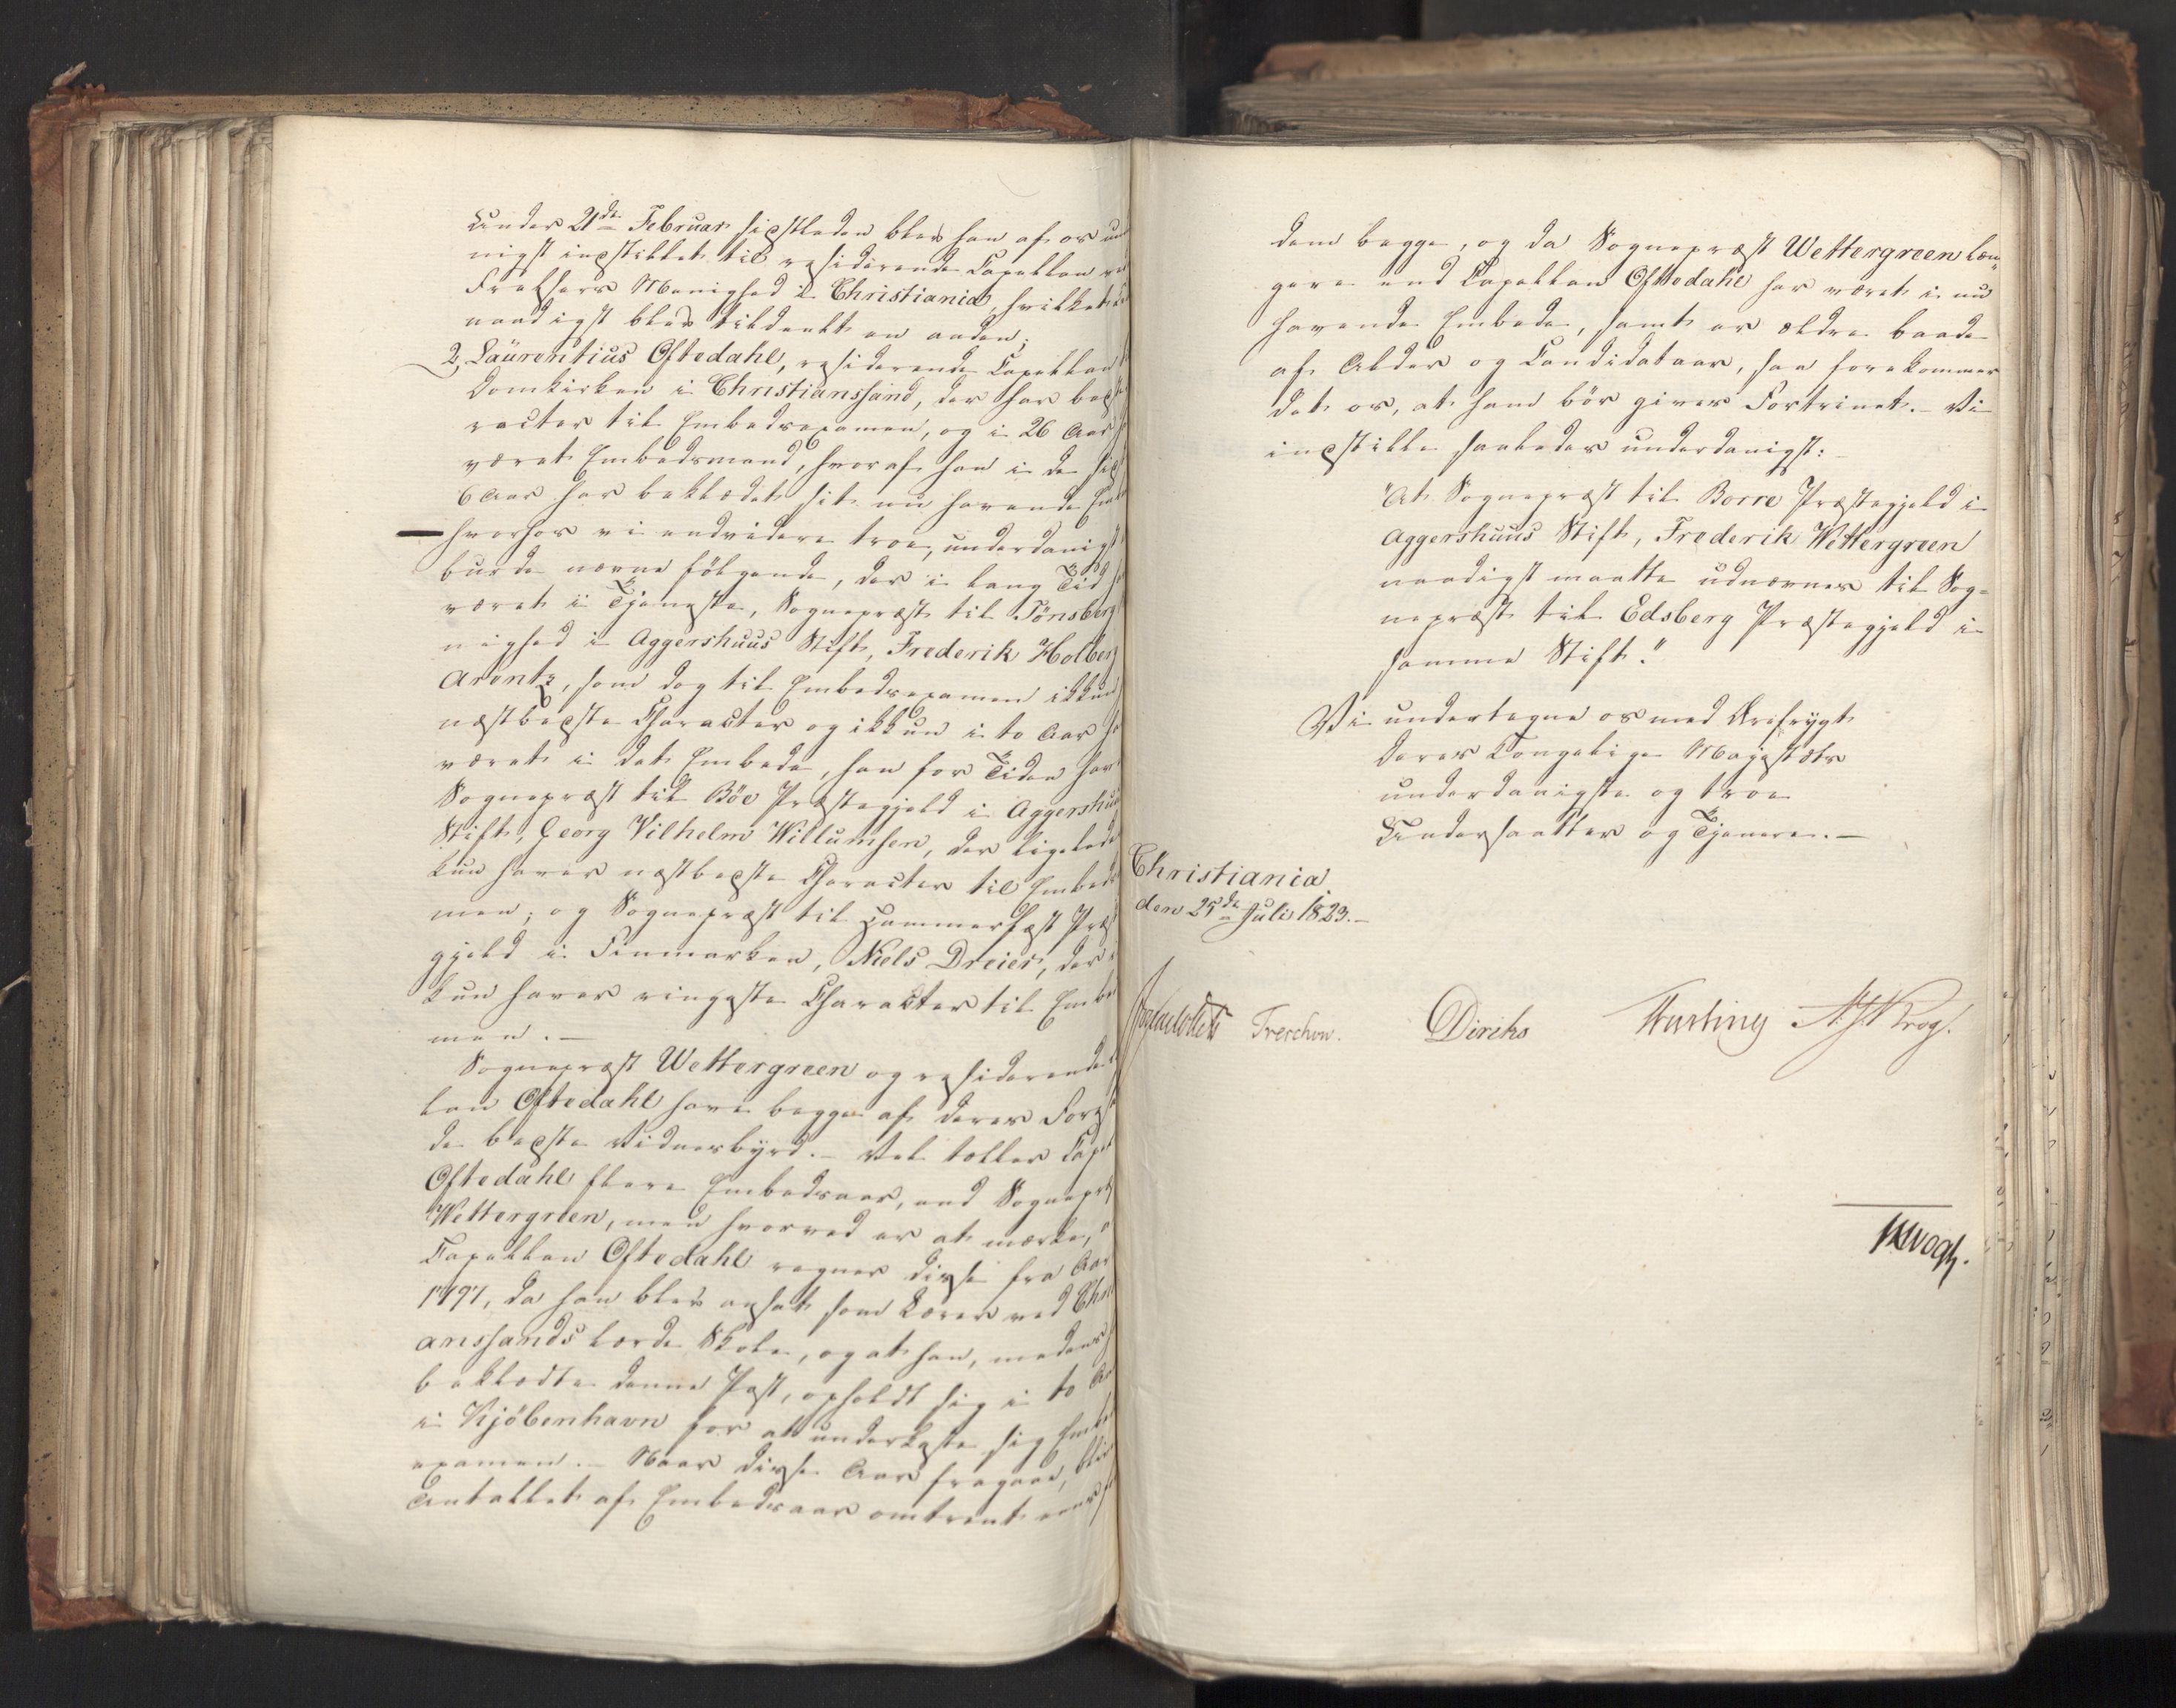 Under 21de Februar sidstleden blev han af os un
nigst indstillet til residerende Capellan ve
Frelsers Menighed i Christiania, hvilket
naadigst blev tildeelt en anden;
2, Laurentius Oftedahl, residerende Capellan
Domkirken i Christianssand, der har bedste
racter til Embedsexamen, og i 26 Aar
været Embedsmand, hvoraf han i de sid
6 Aar har beklædet sit nu havende Em
hvorhos vi endvidere troe, underdanigst
burde nævne følgende, der i lang Tid
været i Tjeneste, Sognepræst til Tönsberg
nighed i Aggershuus Stift, Frederik Holberg
Arentz, som dog til Embedsexamen ikkun
næstbedste Character og ikkun i to Aar ha
været i det Embede, han for Tiden har
Sognepræst til Böe Præstegjeld i Aggershuu
Stift, Georg Vilhelm Willumsen, der ligelede
kun haver næstbedste Character til Embeds
men; og Sognepræst til Hammerfest Præs
gjeld i Finmarken, Niels Dreier, der
kun haver ringeste Character til Embe
men.—
Sognepræst Wettergreen og residerende
lan Oftedahl have begge af deres Fores
de bedste Vidnesbyrd.— Vel tæller Cape
Oftedahl flere Embedsaar, end Sognepræ
Wettergreen, men hvorved er at mærke,
Capellan Oftedahl regner disse fra Aar
1797, da han blev ansat som Lærer ved Chri
anssands lærde Skole, og at han, medens
beklædte denne Post, opholdt sig i to Aa
i Kjöbenhavn for at underkaste sig Embe
examen.— Naar disse Aar fragaae, bli
Antallet af Embedsaar omtrent eens
dem begge, og da Sognepræst Wettergreen læn„
gere end Capellan Oftedahl har været i nu
havende Embede, samt er ældre baade
af Alder og Candidataar, saa forekommer
det os, at ham bör gives Fortrinet.— Vi
indstille saaledes underdanigst:
"At Sognepræst til Borre Præstegjeld i
Aggershuus Stift, Frederik Wettergreen
naadigst maatte udnævnes til Sog=
nepræst til Edsberg Præstegjeld i
samme Stift."
Vi undertegne os med Ærefrygt
Deres Kongelige Majestæts
underdanigste og troe
Undersaatter og Tjenere.—
Christiania
den 25de Juli 1823.—
Treschow. Diriks Krog.